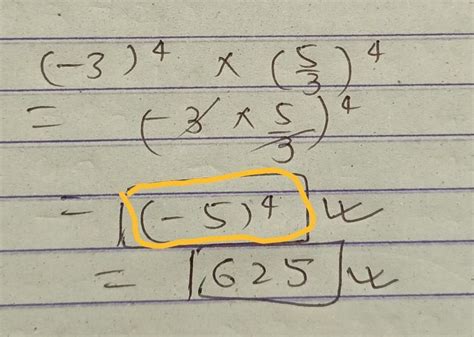 (-3)^4 × (5/3)^4
= (-3 × 5/3)^4
= (-5)^4
= 625